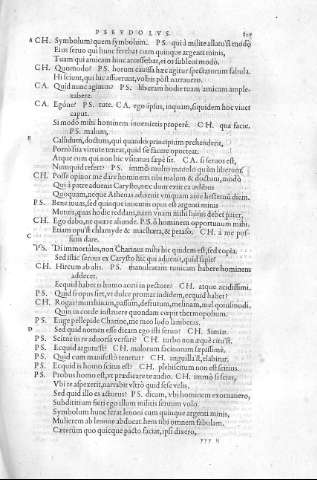 PSEVDOLVS.
A CH. Symbolum? quem symbolum. PS. qui à milite allatu'st modò
Ei os seruo qui hunc ferebat cum quinque argenti minis,
Tuam qui amicam hinc accersebat, ei os subleui modò.
CH. Quomodo? PS. horum caussa hæc agitur spectatorum fabula.
Hi sciunt, qui hic affuerunt, vobis pòst narrauero.
CA. Quid nunc agimus? PS. liberam hodie tuam amicam ample-
xabere.
CA. Egóne? PS. tute. CA. ego ipsus, inquam, siquidem hoc viuet
caput.
Si modò mihi hominem inuenietis properè. CH. qua facie.
PS. malum,
B Callidum, doctum, qui quando principium prehenderit,
Porrò sua virtute teneat, quid se facere oporteat.
Atque qui non hic visitatus sæpe sit. CA. si seruus est,
Nunquid refert? PS. immò multo mauolo quàm liberum.
CH. Posse opinor me dare hominem tibi malum & doctum, modò
Qui à patre aduenit Carysto, nec dum exiit ex ædibus
Quoquam, neque Athenas aduenit vnquam ante hesternum diem.
PS. Bene iuuas, sed quinque inuentis opus est argenti minis
Mutuis, quas hodie reddam, nam huius mihi debet pater,
CH. Ego dabo, ne quære aliunde. PS. ô hominem opportunum mihi.
Etiam opu'st chlamyde & machæra, & petaso. CH. à me pos-
sum dare.
C PS. Di immortales, non Charinus mihi hic quidem est, sed copia.
Sed istic seruus ex Carysto hic qui aduenit, quid sapit?
CH. Hircum ab alis. PS. manuleatam tunicam habere hominem
addecet.
Ecquid habet is homo aceti in pectore? CH. atque acidissimi.
PS. Quid si opus sit, vt dulce promat indidem, ecquid habet?
CH. Rogas? murrhinam, passum, defrutum, melinam, mel quoiusmodi.
Quin in corde instruere quondam cœpit thermopolium.
PS. Euge pellepide Charine, me meo ludo lamberas.
D Sed quid nomen esse dicam ego isti seruo? CH. Simiæ.
PS. Scitne in re aduorsa versari? CH. turbo non æquè citu'st.
PS. Ecquid argutu'st? CH. malorum facinorum sæpissimè.
PS. Quid cum manifestò tenetur? CH. anguilla'st, elabitur.
PS. Ecquid is homo scitus est? CH. plebiscitum non est scitius.
PS. Probus homo est, vt prædicare te audio. CH. immò si scias,
Vbi te aspexerit, narrabit vltrò quid sese velis.
Sed quid illo es acturus? PS. dicam, vbi hominem exornauero,
Subdititium fieri ego illum militis seruum volo.
Symbolum hunc ferat lenoni cum quinque argenti minis,
Mulierem ab lenone abducat. hem tibi omnem fabulam.
Cæterùm quo quicque pacto faciat, ipsi dixero,